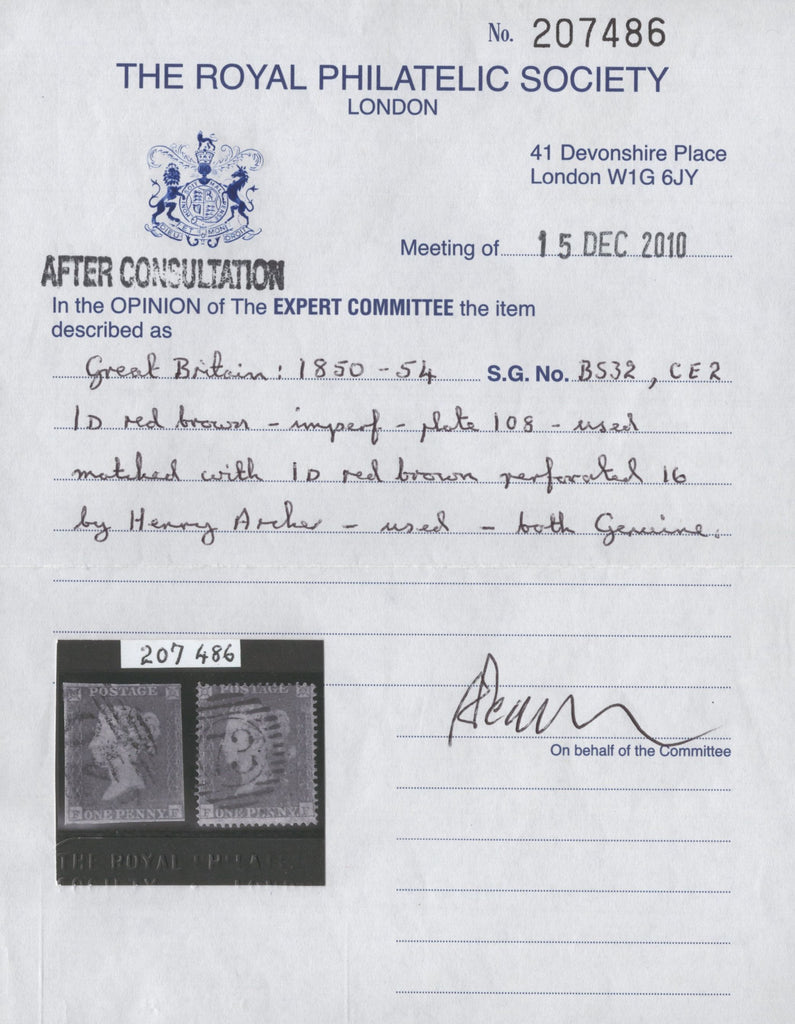 No. 207486
THE ROYAL PHILATELIC SOCIETY
LONDON
41 Devonshire Place
London W1G 6JY
Meeting of 15 DEC 2010
AFTER CONSULTATION
In the OPINION of The EXPERT COMMITTEE the item
described as
Great Britain: 1850-54 S.G. No. BS32, CE2
1D red brown - imperf - plate 108 - used
matched with 1D red brown perforated 16
by Henry Archer - used - both Genuine.
207 486
POSTAGE POSTAGE
F ONE PENNY F F ONE PENNY F
THE ROYAL
On behalf of the Committee